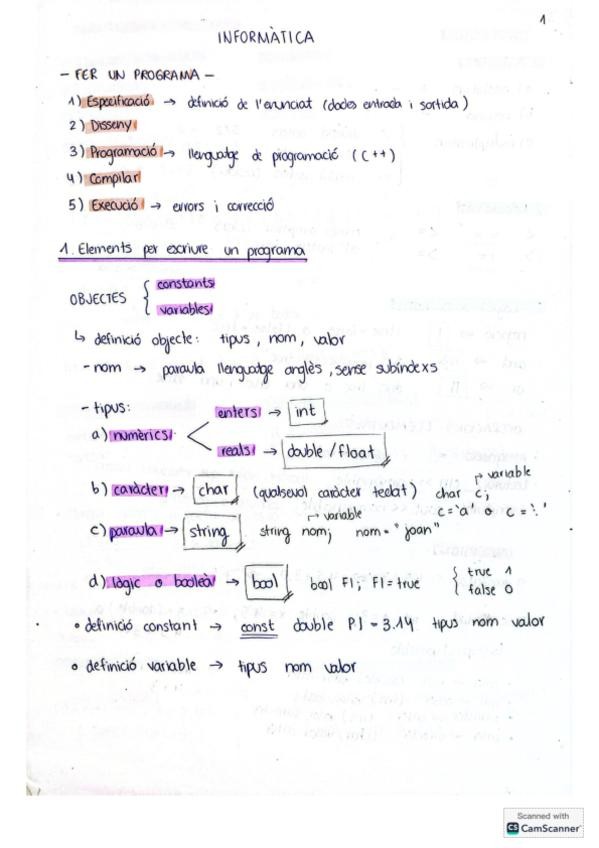 1
INFORMÀTICA
- FER UN PROGRAMA -
1) Especificació → definició de l'enunciat (dades entrada i sortida)
2) Disseny
3) Programació → llenguatge de programació (C++)
4) Compilar
5) Execució → errors i correcció
1. Elements per escriure un programa
OBJECTES { constants
variables
↳ definició objecte: tipus, nom, valor
- nom → paraula llenguatge anglès, sense subíndexs
- tipus:
a) numèrics < enters → int
reals → double / float
b) caràcter → char (qualsevol caràcter teclat) char c;
→ variable
c = 'a' c = '.'
c) paraula → string string nom; nom = "joan"
→ variable
d) lògic o booleà → bool bool F1; F1 = true { true 1
false 0
• definició constant → const double PI = 3.14 tipus nom valor
• definició variable → tipus nom valor
Scanned with
CS CamScanner